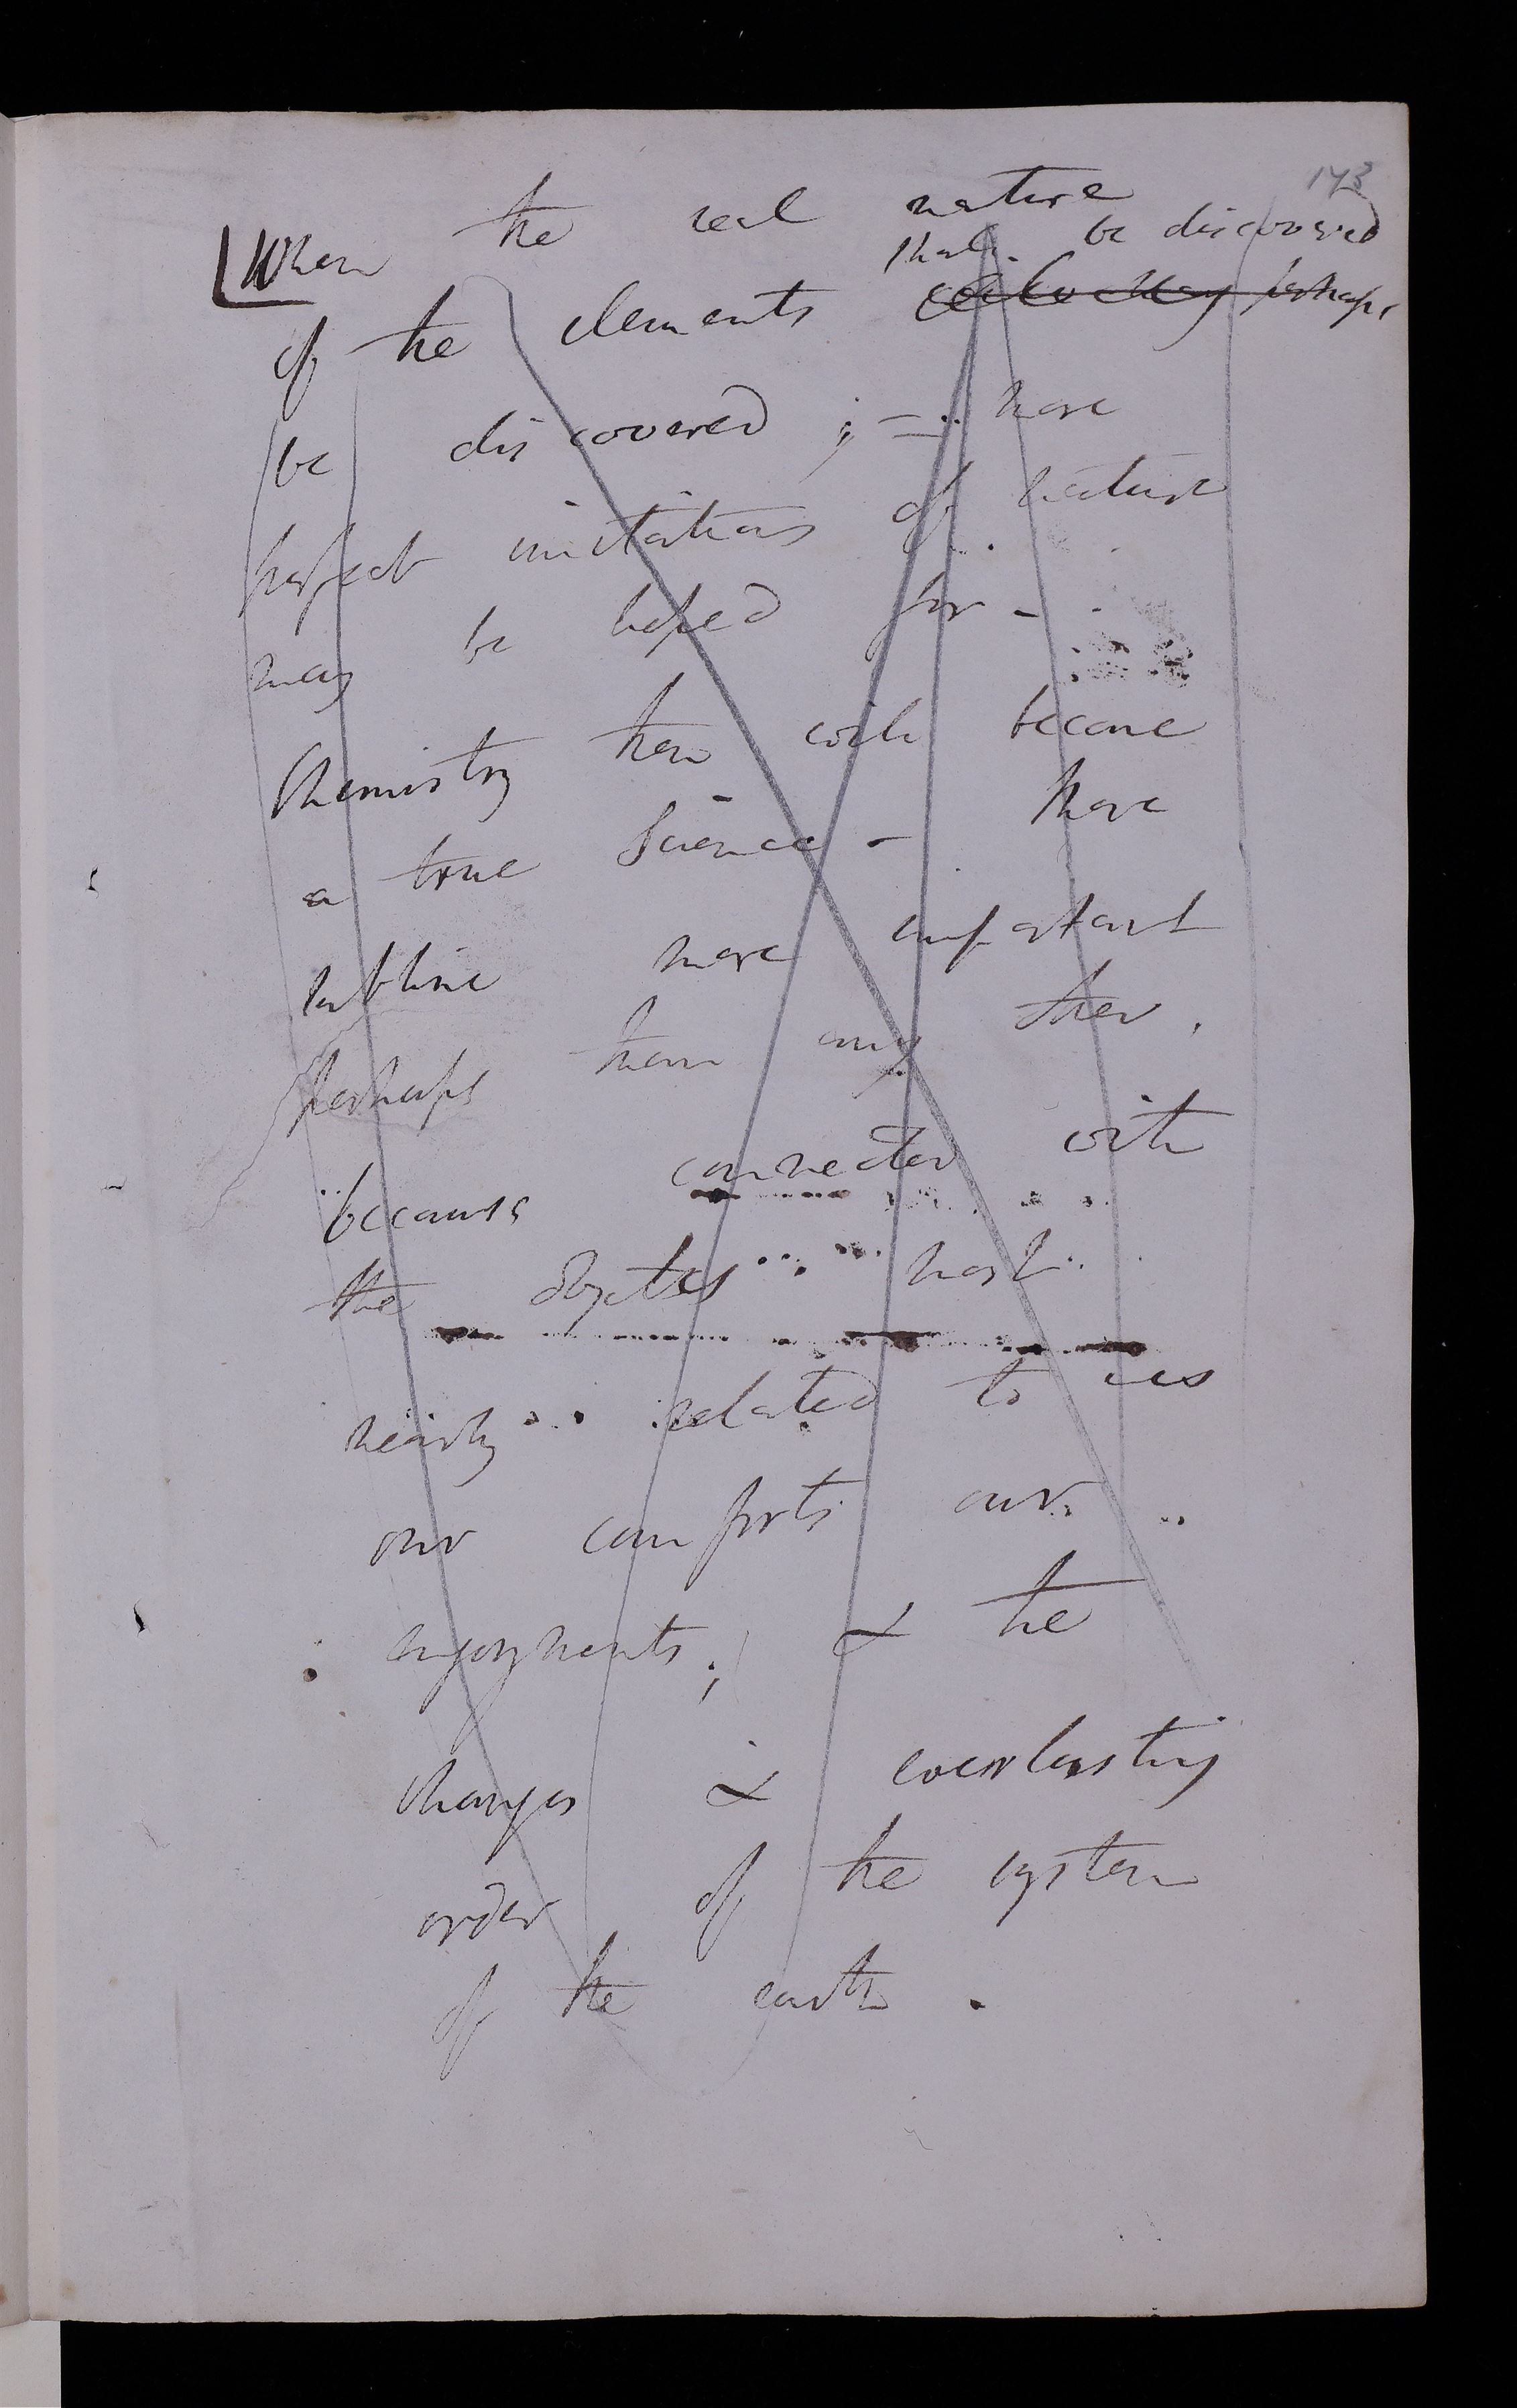 173
When the real nature
shall be discovered
of the elements will they perhaps
be discovered ; = more
perfect imitations of nature
may be hoped for -
Chemistry then will become
a true Science - More
sublime more important
perhaps than any other,
because connected with
the objects most
nearly related to us
our comforts our
enjoyments; & the
changes & everlasting
order of the system
of the earth .